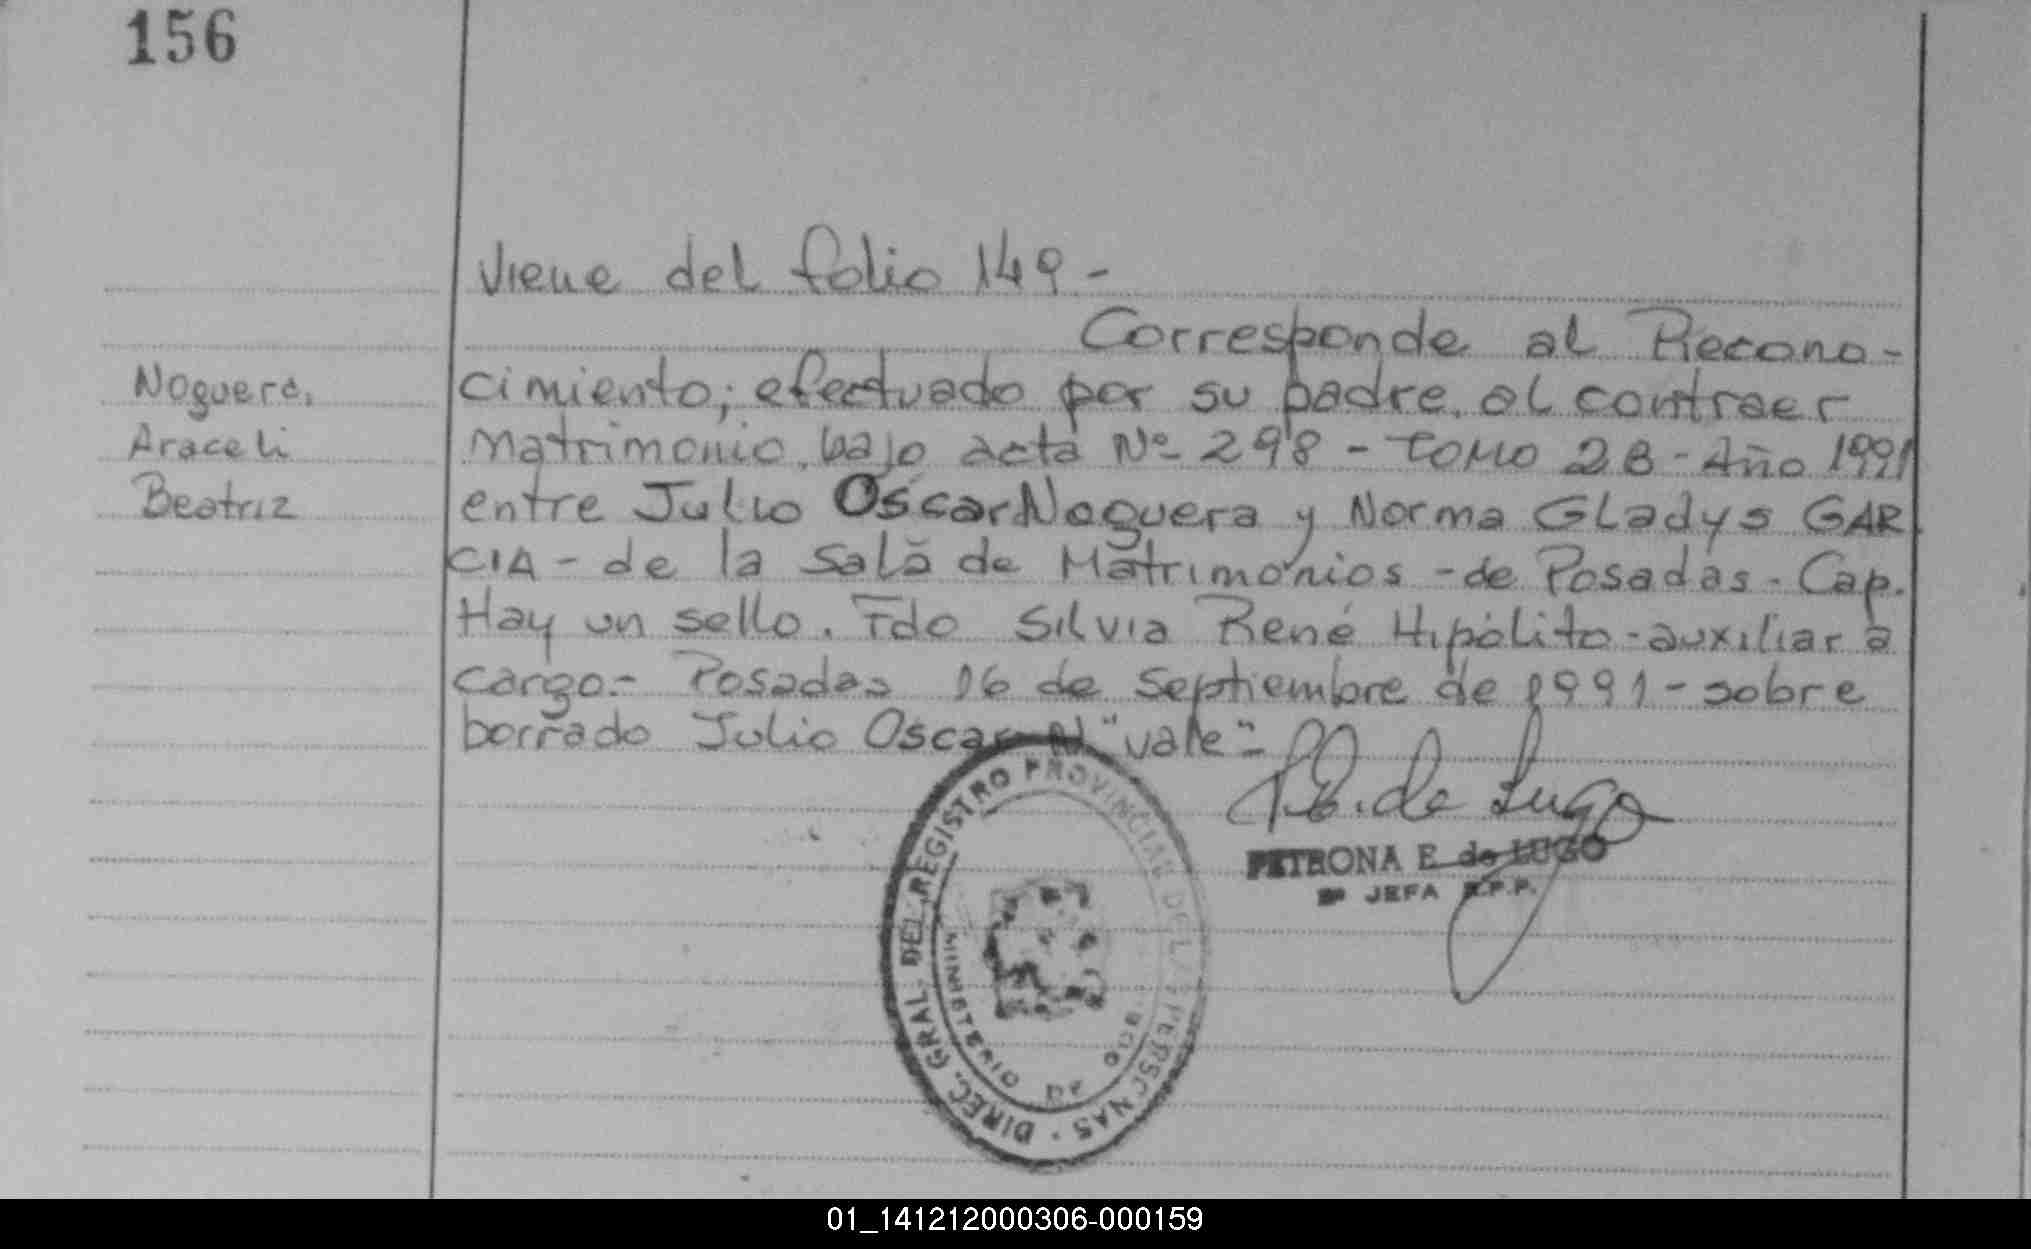 156
Viene del folio 149 -
Corresponde al Recono-
Noguera,
Araceli
Beatriz
cimiento; efectuado por su padre, al contraer
Matrimonio, bajo acta Nº 298 - TOMO 2B - Año 1991
entre Julio Oscar Noguera y Norma Gladys GAR
CIA - de la Sala de Matrimonios - de Posadas - Cap.
Hay un sello. Fdo Silvia René Hipólito - auxiliar a
cargo.- Posadas 16 de Septiembre de 1991 - sobre
borrado Julio Oscar N "vale" -
P.E. de Lugo
PETRONA E. de LUGO
JEFA R.P.P.
DIREC. GRAL. DEL REGISTRO PROVINCIAL DE LAS PERSONAS
MINISTERIO DE GOB
01_141212000306-000159